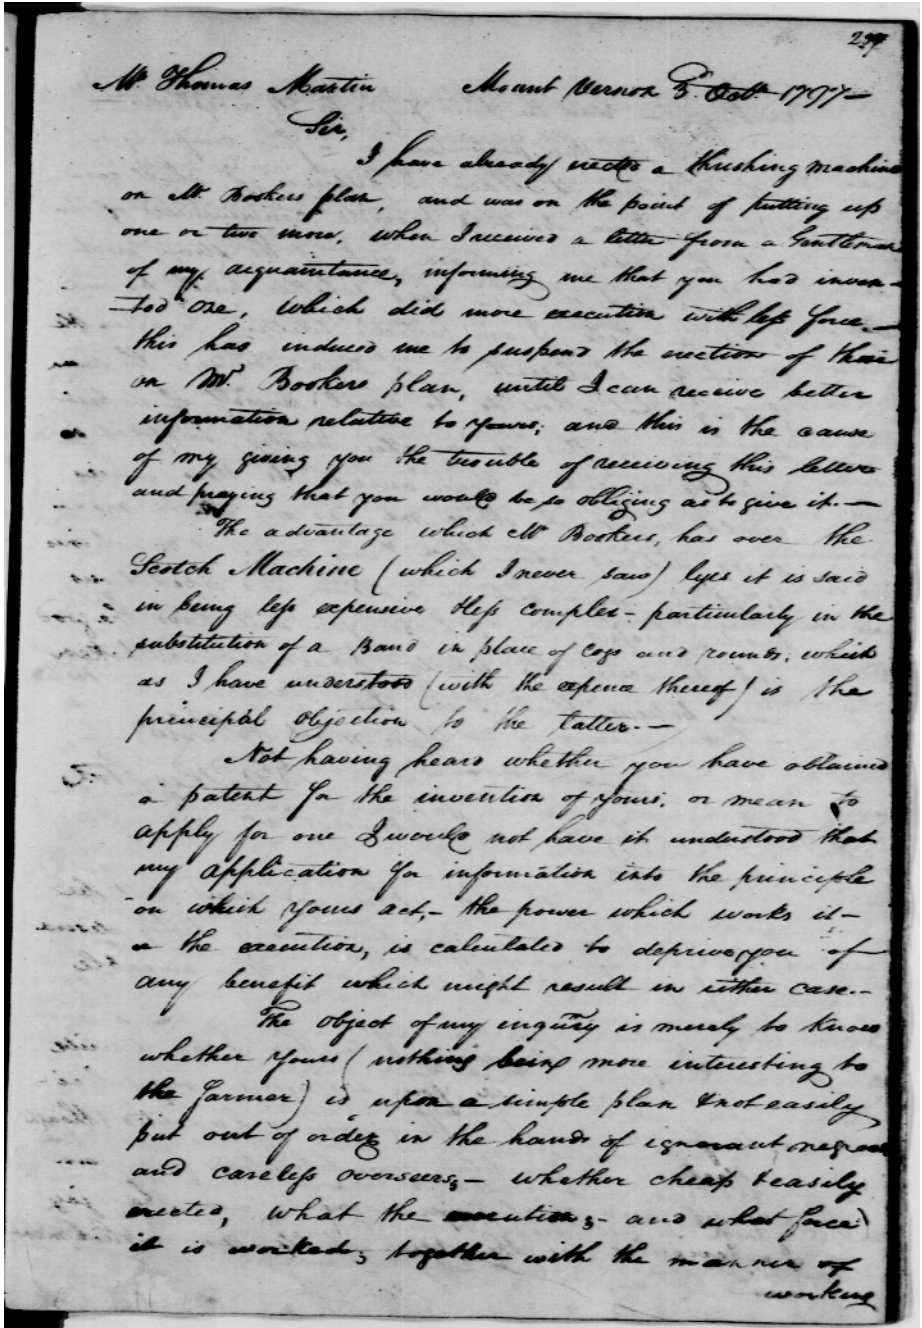 Mr. Thomas Martin Mount Vernon 5th. Octr. 1797—
Sir,
I have already erected a thrushing machine
on Mr. Bookers plan, and was on the point of putting up
one or two more, when I received a letter from a Gentleman
of my acquaintance, informing me that you had inven-
-ted one, which did more execution with less force.—
this has induced me to suspend the erection of those
on Mr. Bookers plan, until I can receive better
information relative to yours; and this is the cause
of my giving you the trouble of receiving this letter
and praying that you would be so obliging as to give it.—
The advantage which Mr Bookers, has over the
Scotch Machine (which I never saw) lyes it is said
in being less expensive & less complex– particularly in the
substitution of a Band in place of cogs and rounds; which
as I have understood (with the expence thereof) is the
principal objection to the latter.—
Not having heard whether you have obtained
a patent for the invention of yours, or mean to
apply for one I would not have it understood that
my application for information into the principle
on which yours act,– the power which works it–
or the execution, is calculated to deprive you of
any benefit which might result in either case.–
The object of my inquiry is merely to know
whether yours (nothing being more interesting to
the farmer) is upon a simple plan & not easily
put out of order in the hands of ignorant negroes
and careless overseers;– whether cheap & easily
erected, what the execution;– and what force
it is worked; together with the manner of
working